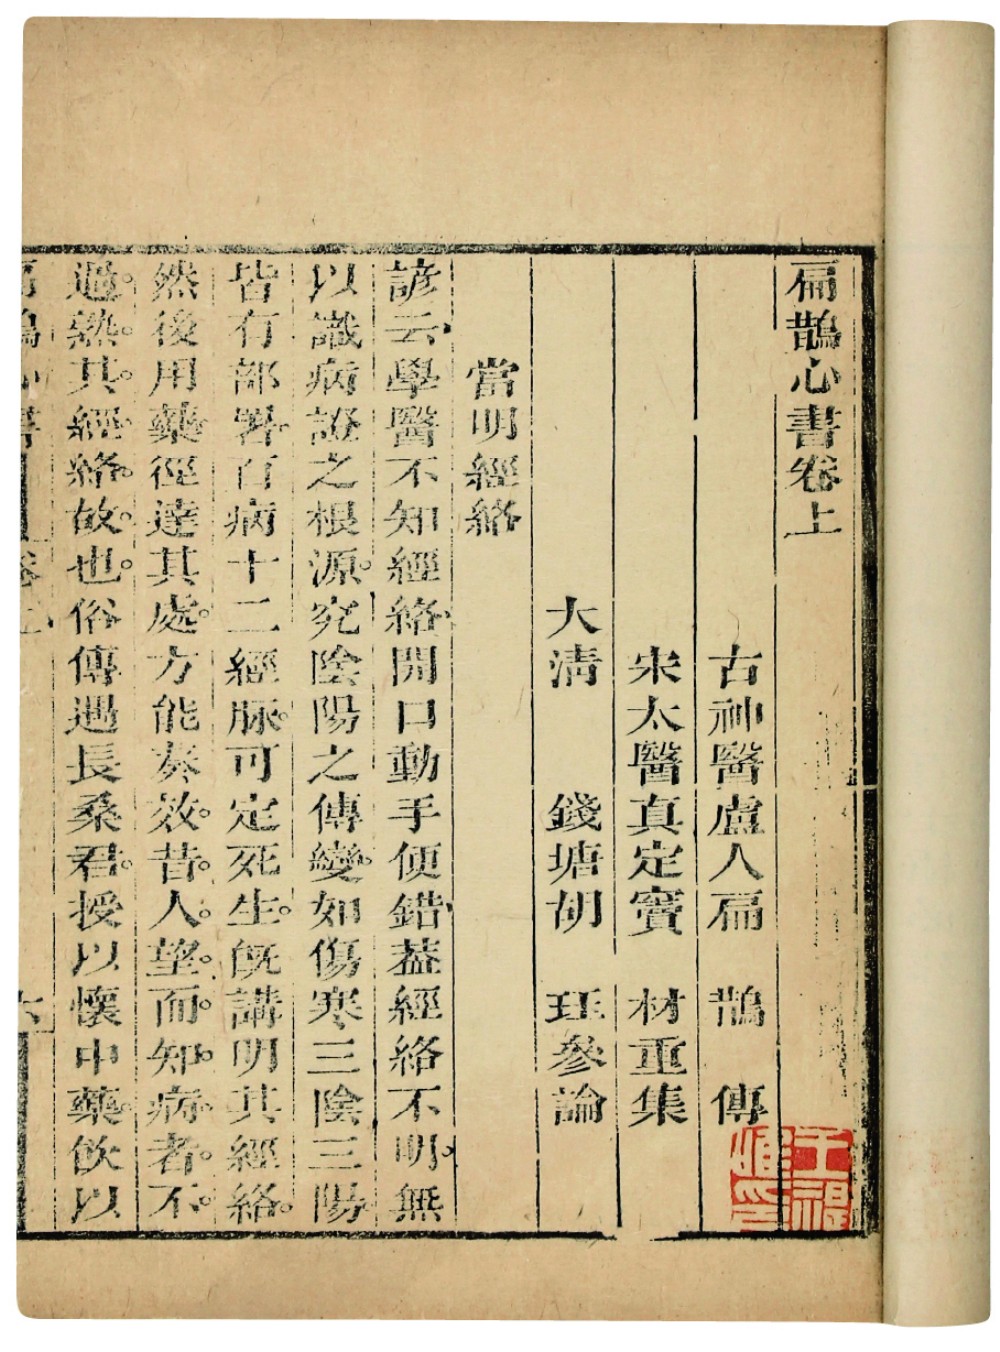 扁鵲心書卷上
古神醫盧人扁　鵲　傳
宋太醫真定竇　材重集
大清　錢塘胡　珏參論
當明經絡
諺云、學醫不知經絡、開口動手便錯、葢經絡不明。無
以識病證之根源。究陰陽之傳變。如傷寒三陰三陽。
皆有部署、百病十二經脉。可定死生。旣講明其經絡。
然後用藥、徑達其處。方能奏效。昔。人。望。而。知。病。者。不。
過。熟。其。經。絡。故。也。俗傳遇長桑君。授以懷中藥。飲以
扁鵲心書　卷上　六